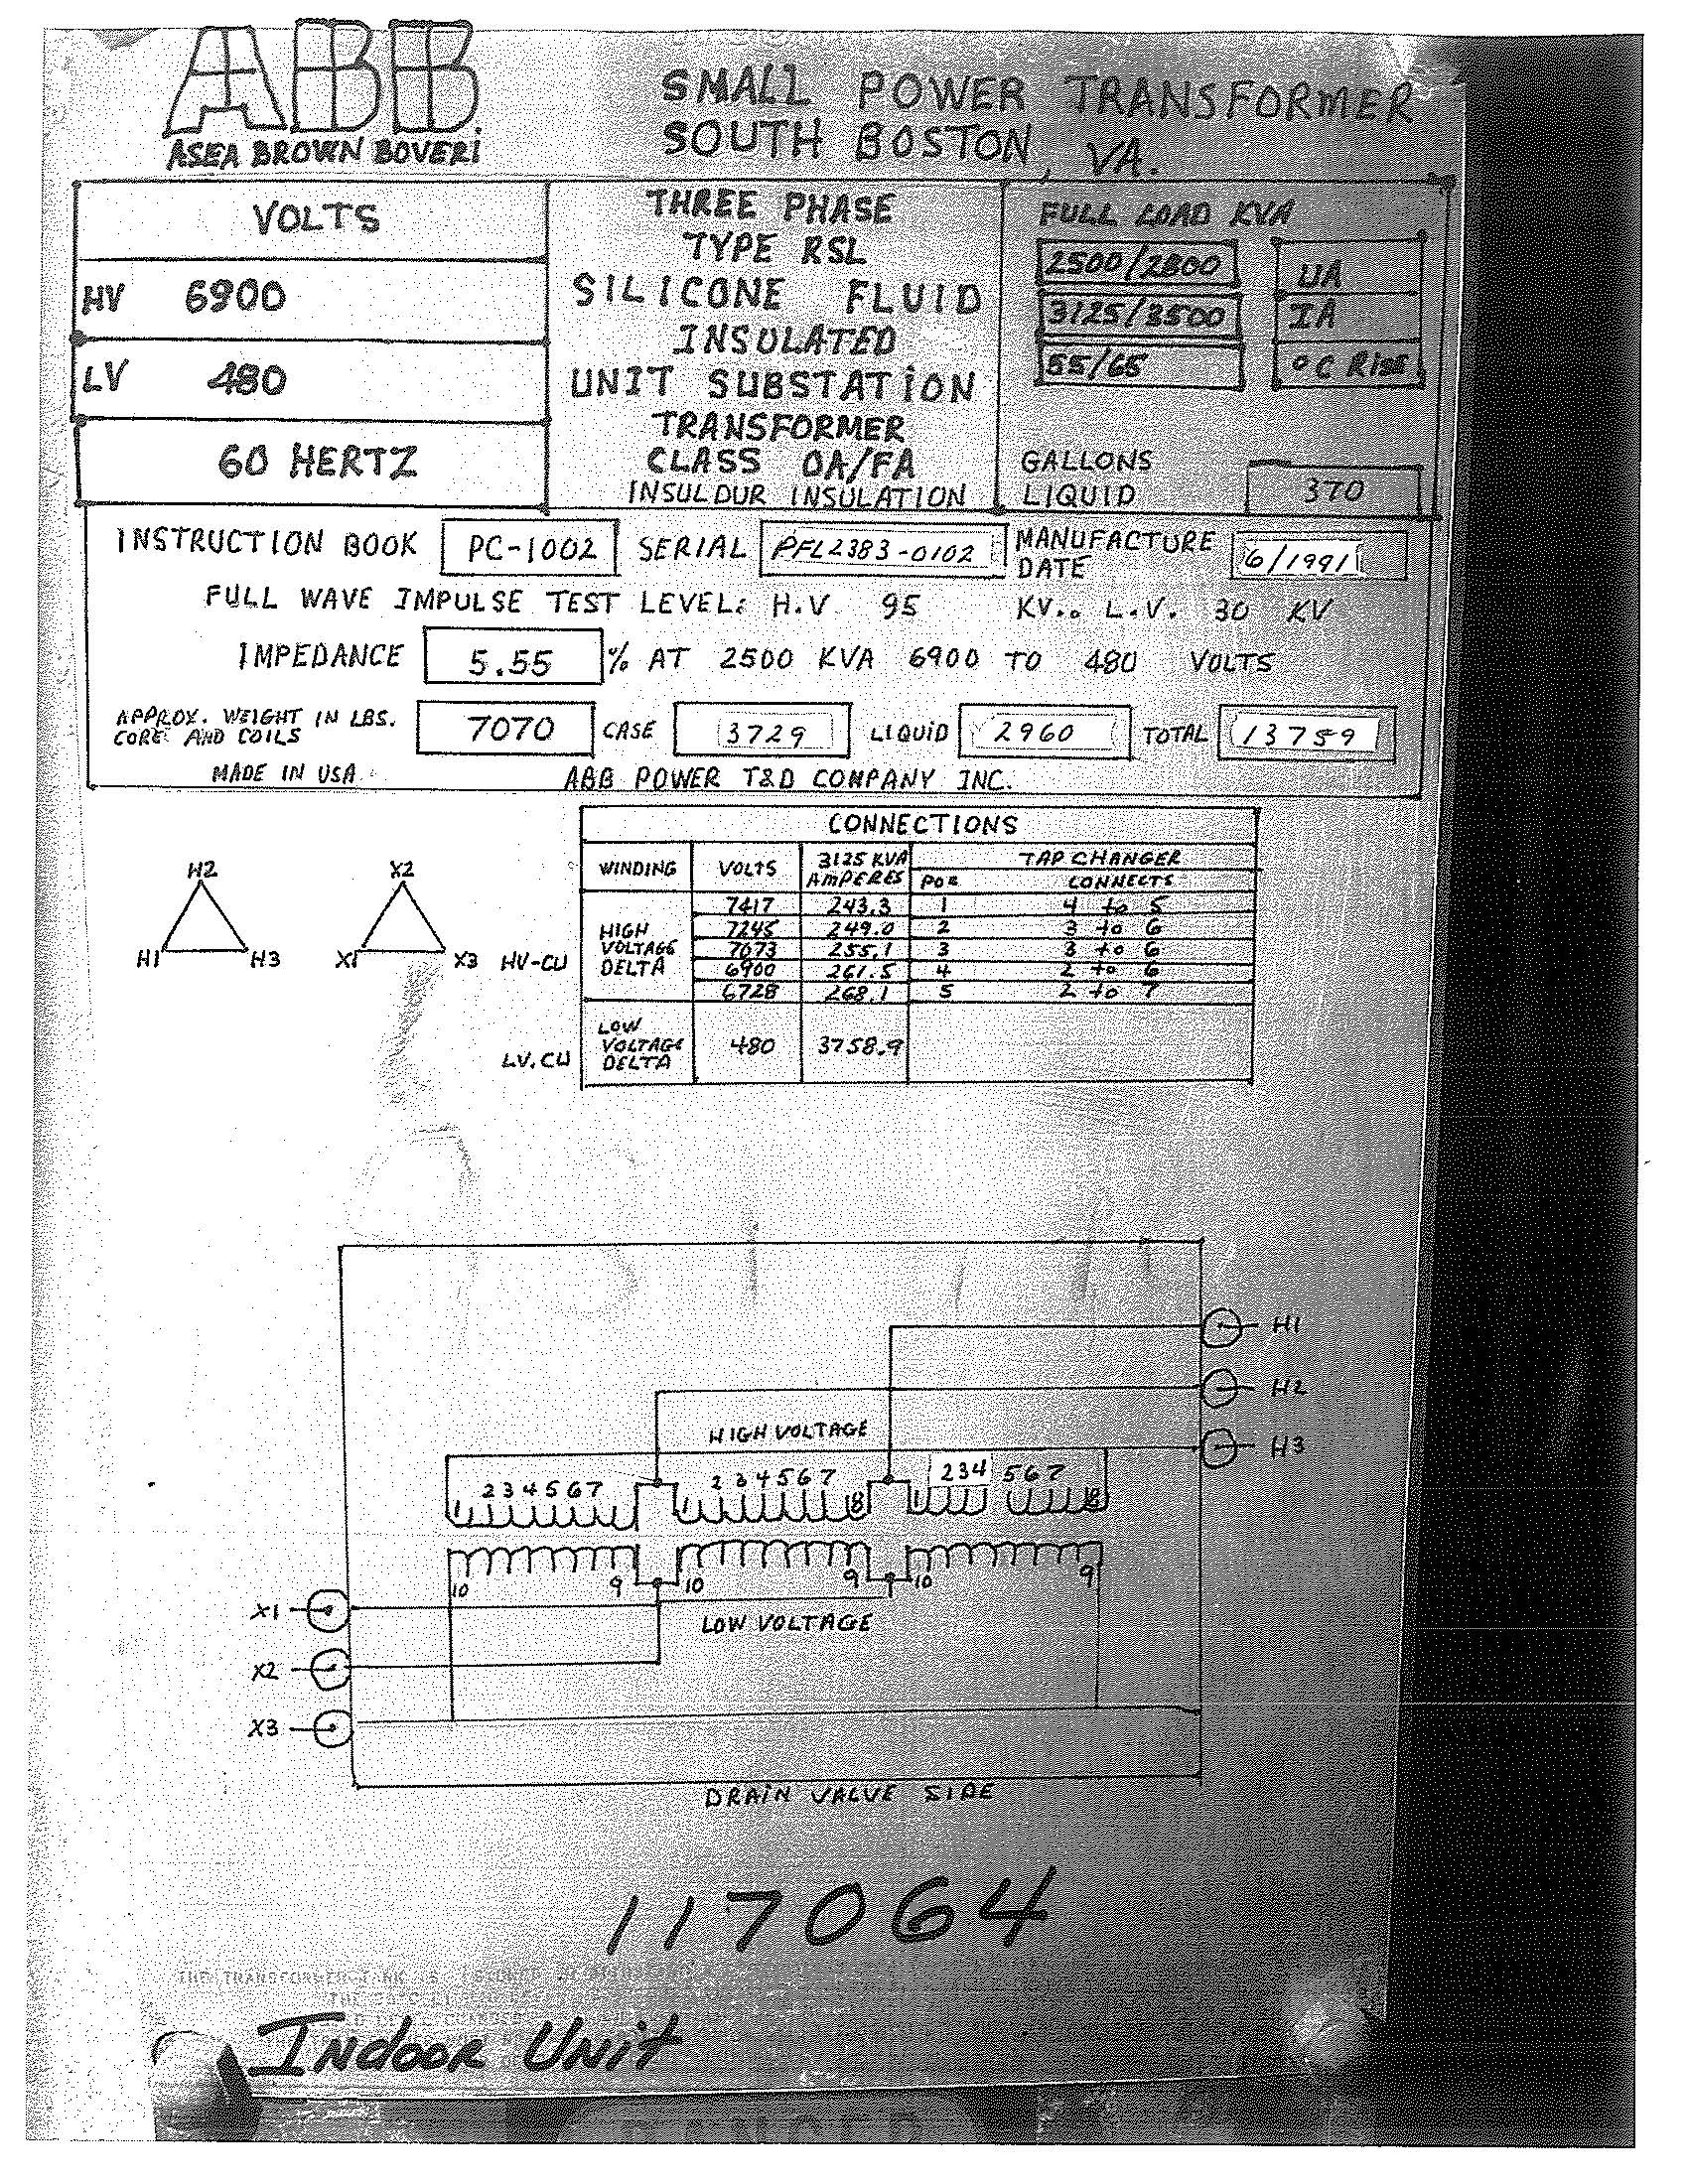 ABB
ASEA BROWN BOVERI
SMALL POWER TRANSFORMER
SOUTH BOSTON, VA.
VOLTS
HV 6900
LV 480
60 HERTZ
THREE PHASE
TYPE RSL
SILICONE FLUID
INSULATED
UNIT SUBSTATION
TRANSFORMER
CLASS OA/FA
INSULDUR INSULATION
FULL LOAD KVA
2500/2800 UA
3125/3500 IA
55/65 °C RISE
GALLONS
LIQUID 370
INSTRUCTION BOOK PC-1002 SERIAL PFL2383-0102 MANUFACTURE
DATE 6/1991
FULL WAVE IMPULSE TEST LEVEL: H.V 95 KV.. L.V. 30 KV
IMPEDANCE 5.55 % AT 2500 KVA 6900 TO 480 VOLTS
APPROX. WEIGHT IN LBS.
CORE AND COILS 7070 CASE 3729 LIQUID 2960 TOTAL 13759
MADE IN USA ABB POWER T&D COMPANY INC.
CONNECTIONS
WINDING VOLTS 3125 KVA AMPERES TAP CHANGER
POS CONNECTS
HIGH VOLTAGE DELTA
7417 243.3 1 4 to 5
7245 249.0 2 3 to 6
7073 255.1 3 3 to 6
6900 261.5 4 2 to 6
6728 268.1 5 2 to 7
LOW VOLTAGE DELTA 480 3758.9
H2 X2
H1 H3 X1 X3 HV-CU
LV.CU
H1
H2
HIGH VOLTAGE
H3
2 3 4 5 6 7 2 3 4 5 6 7 234 567
1 1 8 1 8
10 9 10 9 10 9
X1
LOW VOLTAGE
X2
X3
DRAIN VALVE SIDE
117064
Indoor Unit